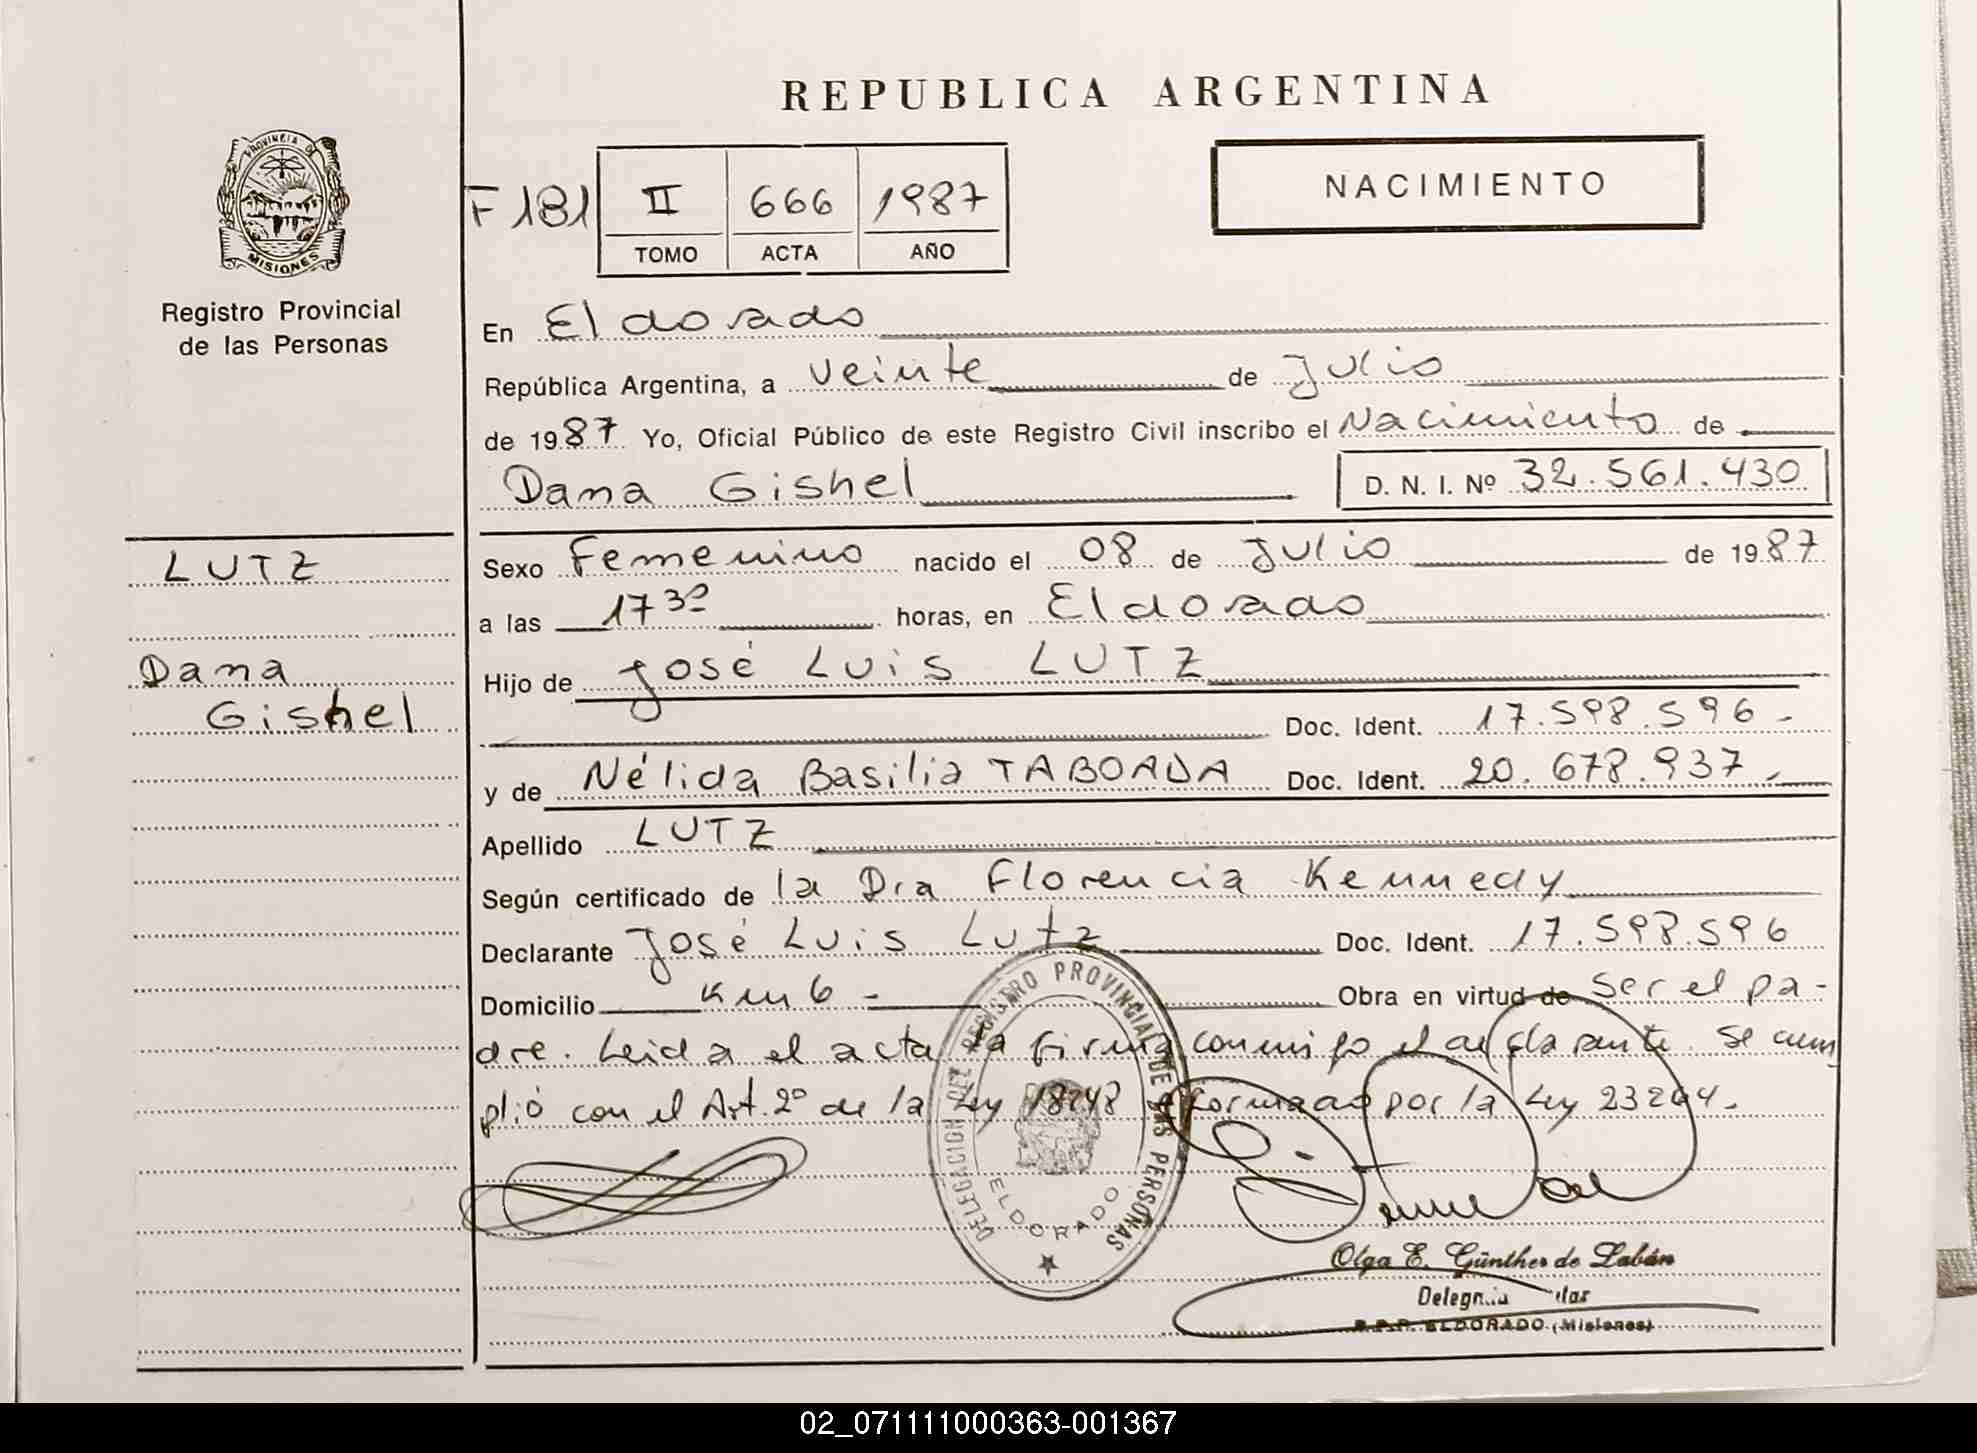 REPUBLICA ARGENTINA
PROVINCIA DE
MISIONES
Registro Provincial
de las Personas
F 181
II 666 1987
TOMO ACTA AÑO
NACIMIENTO
En Eldorado
República Argentina, a veinte de Julio
de 1987 Yo, Oficial Público de este Registro Civil inscribo el Nacimiento de
Dana Gishel D. N. I. Nº 32.561.430
LUTZ
Dana
Gishel
Sexo Femenino nacido el 08 de Julio de 1987
a las 17 30 horas, en Eldorado
Hijo de José Luis LUTZ
Doc. Ident. 17.598.596-
y de Nélida Basilia TABOADA Doc. Ident. 20.678.937.-
Apellido LUTZ
Según certificado de la Dra Florencia Kennedy
Declarante José Luis Lutz Doc. Ident. 17.598.596
Domicilio Km 6 - Obra en virtud de ser el pa-
dre. Leida el acta la firma conmigo el declarante. Se cum
plió con el Art. 2º de la Ley 18248 reformado por la Ley 23264.
DELEGACION DEL REGISTRO PROVINCIAL DE LAS PERSONAS
ELDORADO
Olga E. Günther de Labán
R.P.P. ELDORADO (Misiones)
02_071111000363-001367